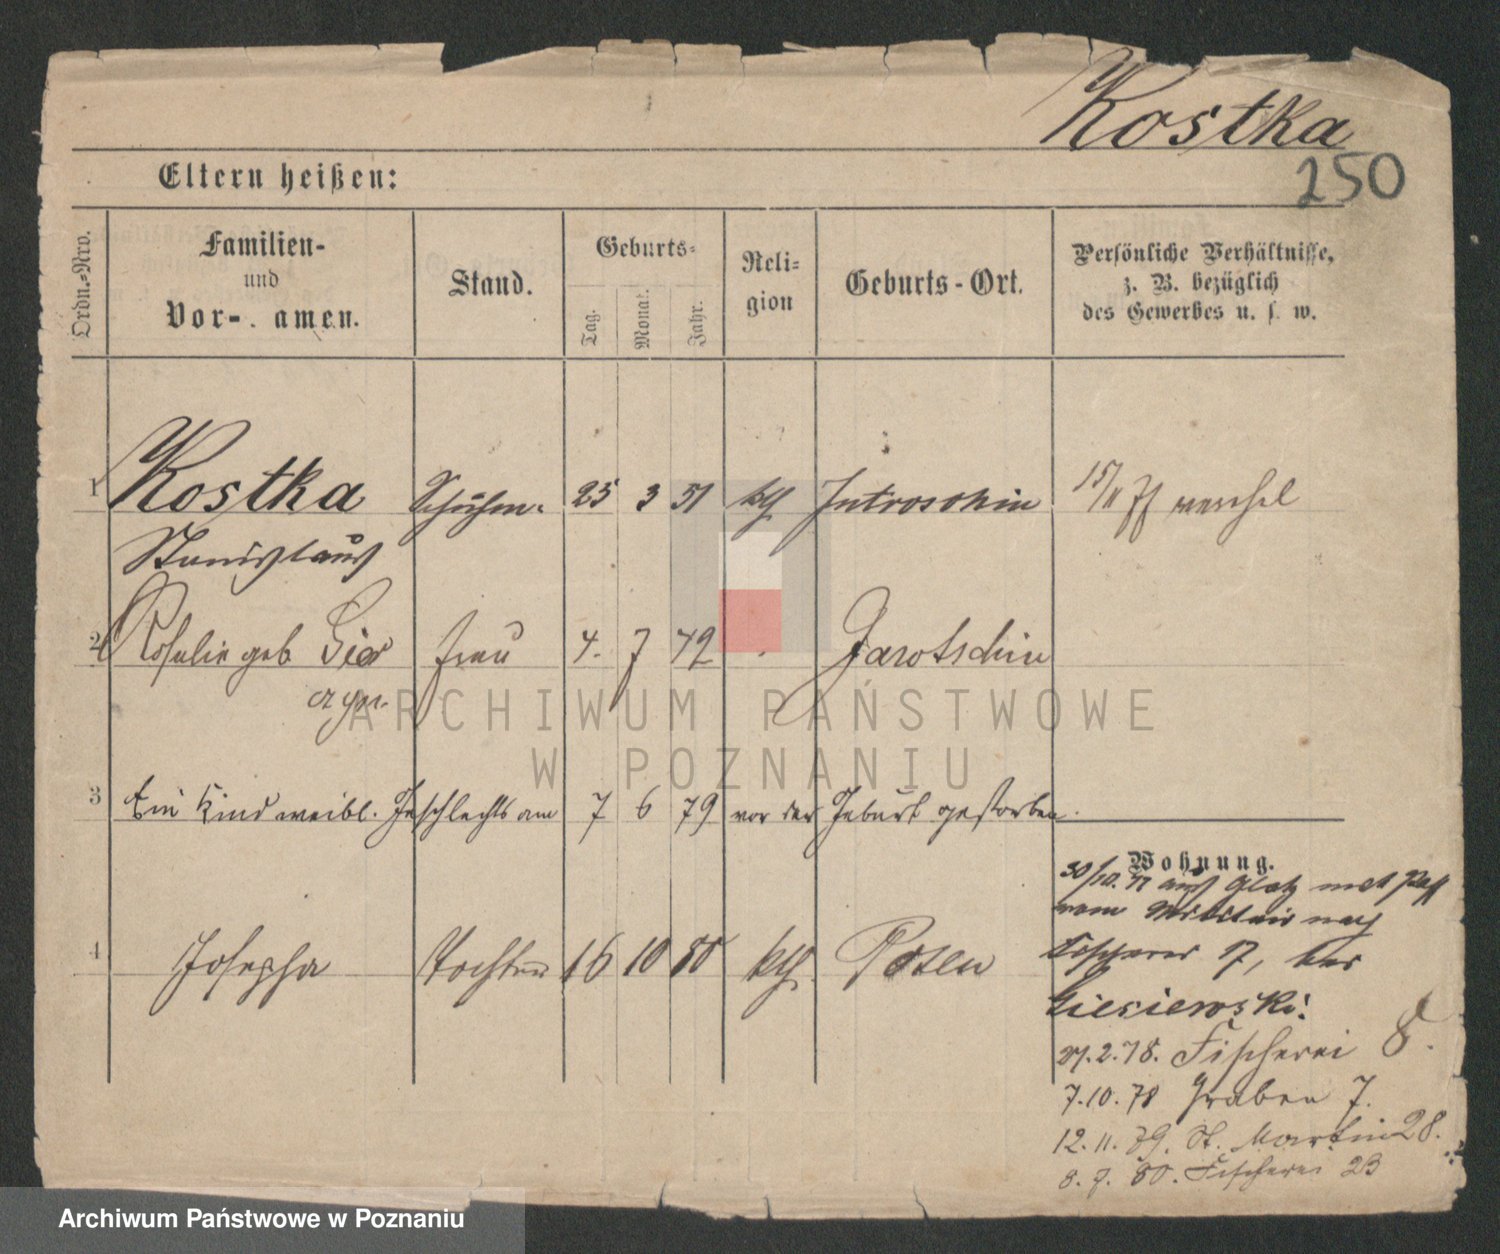 Kostka
250
Eltern heißen:
Ordn.-Nro.
Familien-
und
Vor- amen.
Stand.
Geburts-
Tag.
Monat.
Jahr.
Reli-
gion
Geburts-Ort.
Persönliche Verhältnisse,
z. B. bezüglich
des Gewerbes u. s. w.
1 Kostka Schuhm. 25 3 51 kth Jutroschin 15/11 77
Stanislaus
2 Rosalie geb frau 4. 7 Jarotschin
3 Ein Kind weibl. Geschlechts am 7 6 79 vor der Geburt gestorben.
4 Josepha Tochter 16 10 80 kth. Posen
Wohnung.
30/10. 77 aus Glatz mit Paß
vom Militair nach
Fischerei 17, bei
27.2.78. Fischerei 8.
7.10.78 Graben 7.
12.11.79. St. Martin 28.
8.7.80. Fischerei 23
ARCHIWUM PAŃSTWOWE
W POZNANIU
Archiwum Państwowe w Poznaniu